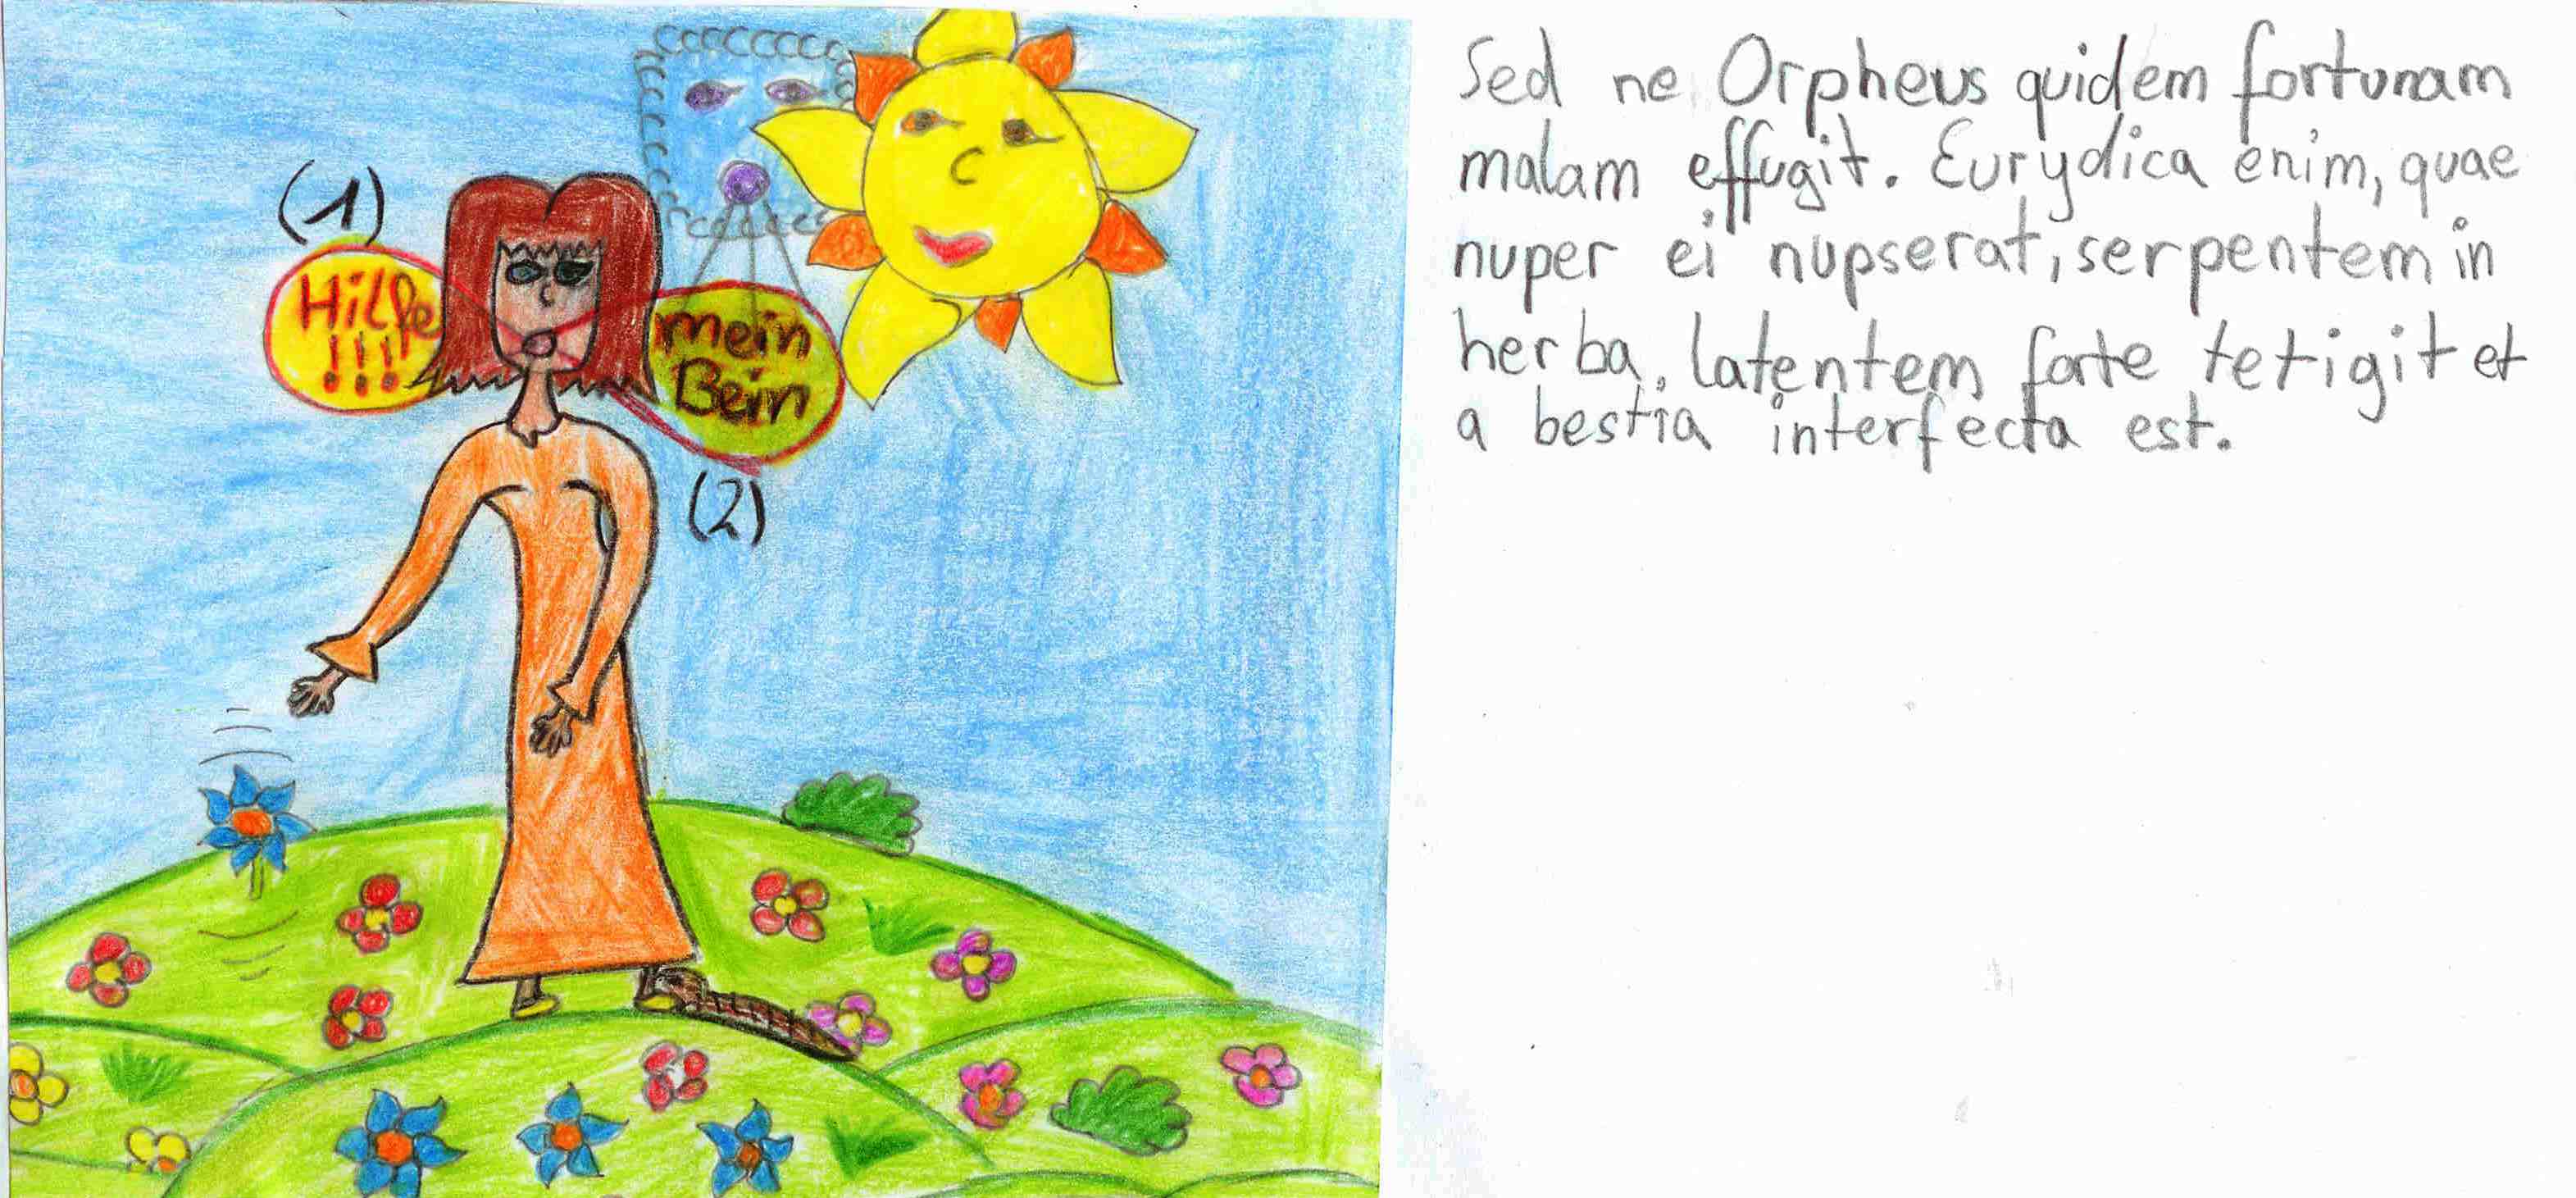 (1)
Hilfe
!!!
mein
Bein
(2)
Sed ne Orpheus quidem fortunam
malam effugit. Eurydica enim, quae
nuper ei nupserat, serpentem in
herba, latentem forte tetigit et
a bestia interfecta est.